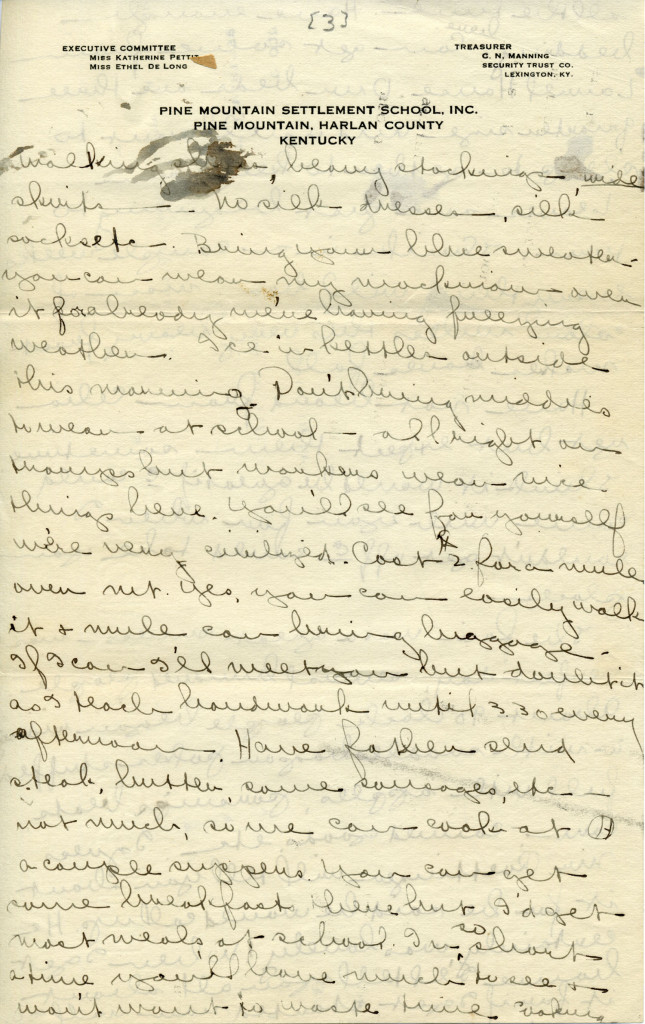 [3]
EXECUTIVE COMMITTEE
MISS KATHERINE PETTIT
MISS ETHEL DE LONG
TREASURER
C. N. MANNING
SECURITY TRUST CO.
LEXINGTON, KY.
PINE MOUNTAIN SETTLEMENT SCHOOL, INC.
PINE MOUNTAIN, HARLAN COUNTY
KENTUCKY
walking shoes, heavy stockings, wide
skirts — no silk dresses, silk
socks etc. Bring your blue sweater -
you can wear my mackinaw over
it for already we're having freezing
weather. Ice in kettles outside
this morning. Don't bring middies
to wear at school - all right on
tramps but workers wear nice
things here. You'll see for yourself
we're very civilized. Cost $2 for a mule
over mt. Yes, you can easily walk
it & mule can bring luggage.
If I can I'll meet you but doubt it
as I teach handwork until 3.30 every
afternoon. Have father send
steak, butter, some sausages, etc -
not much, so we can cook at
a couple suppers. You can get
some breakfasts here but I'd get
most meals at school. In so short
a time you'll have much to see &
won't want to waste time